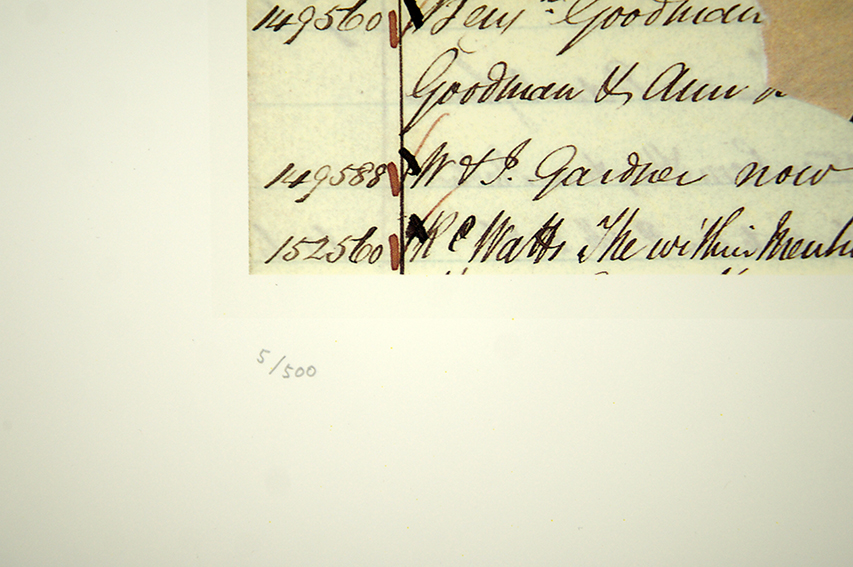 149560 Benj.n Goodman
Goodman & Ann
149588 W & J. Gardner now
152560 Watts The within
5/500